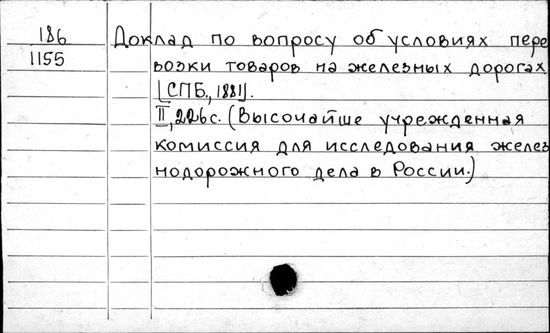 186
1155
Доклад по вопросу об условиях пере
возки товаров на железных дорогах.
[СПБ., 1881].
II, 226 с. (Высочайше учрежденная
комиссия для исследования желез
нодорожного дела в России.)